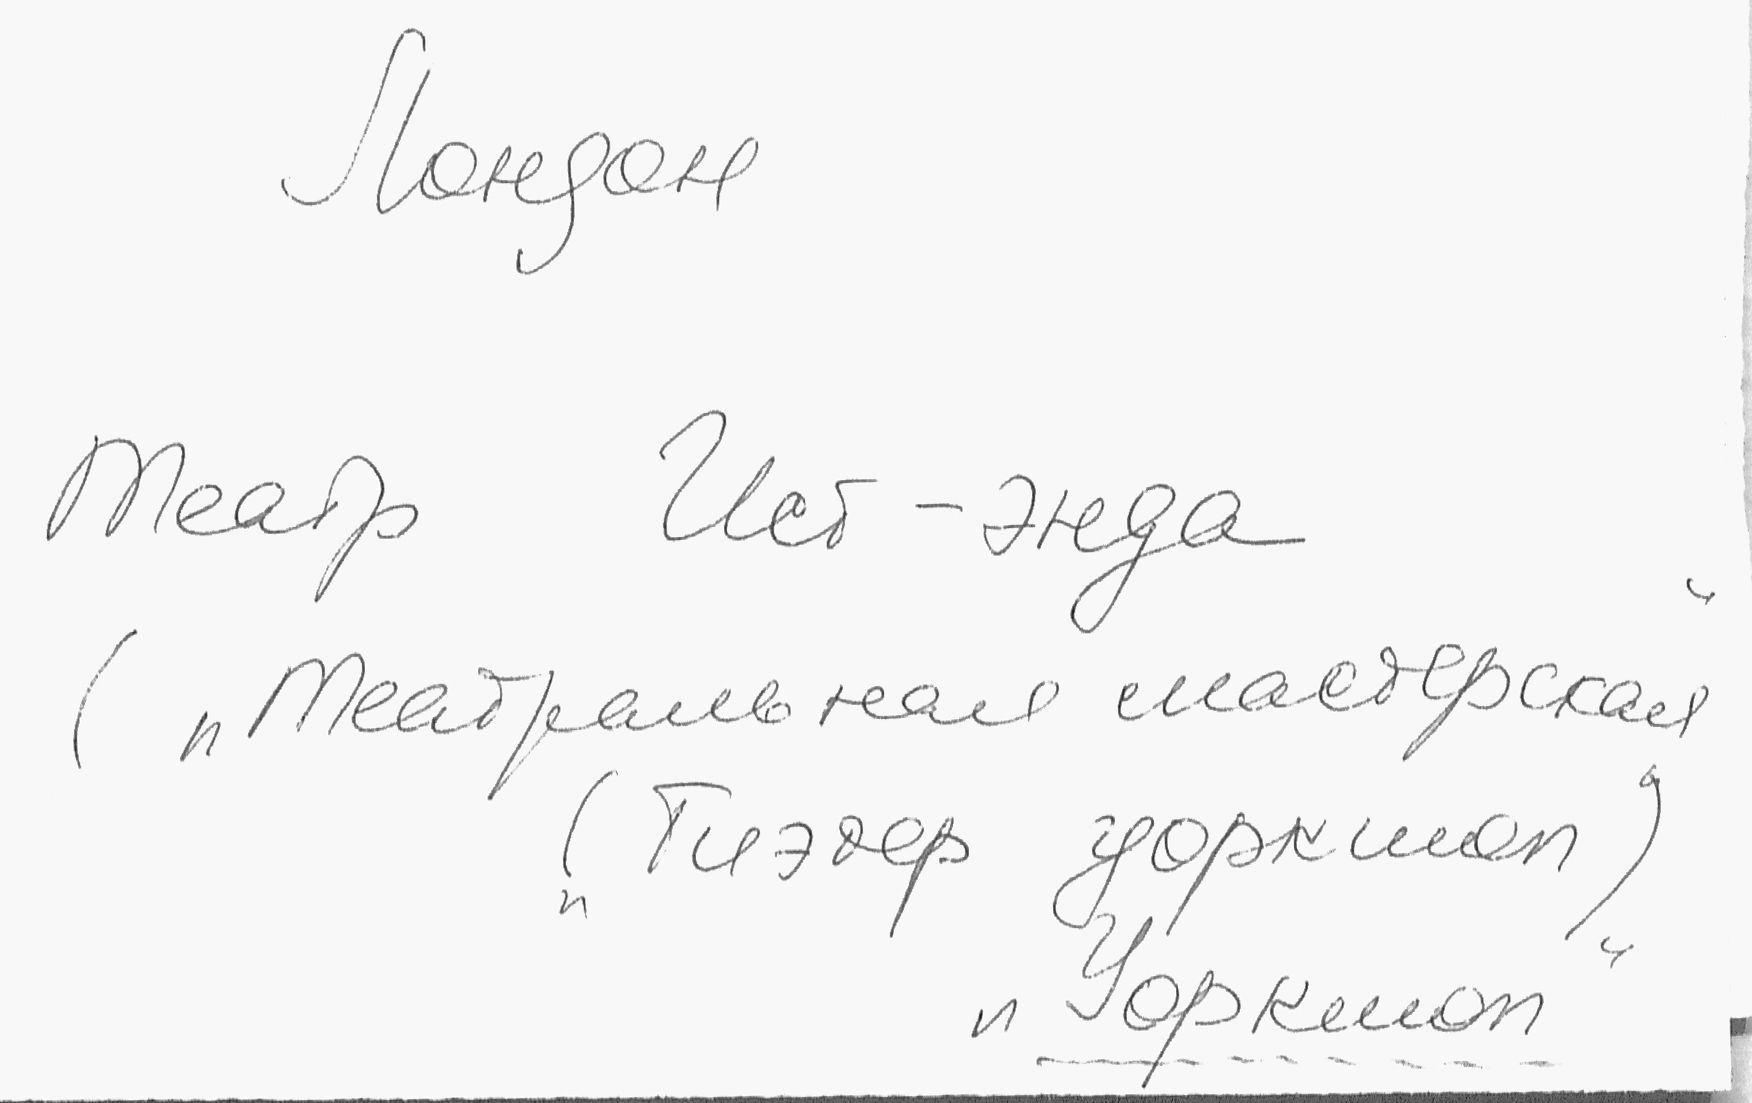 Лондон
Театр Ист-энда
(„Театральная мастерская“
(„Тиэтер уоркшоп“)
„Уоркшоп“